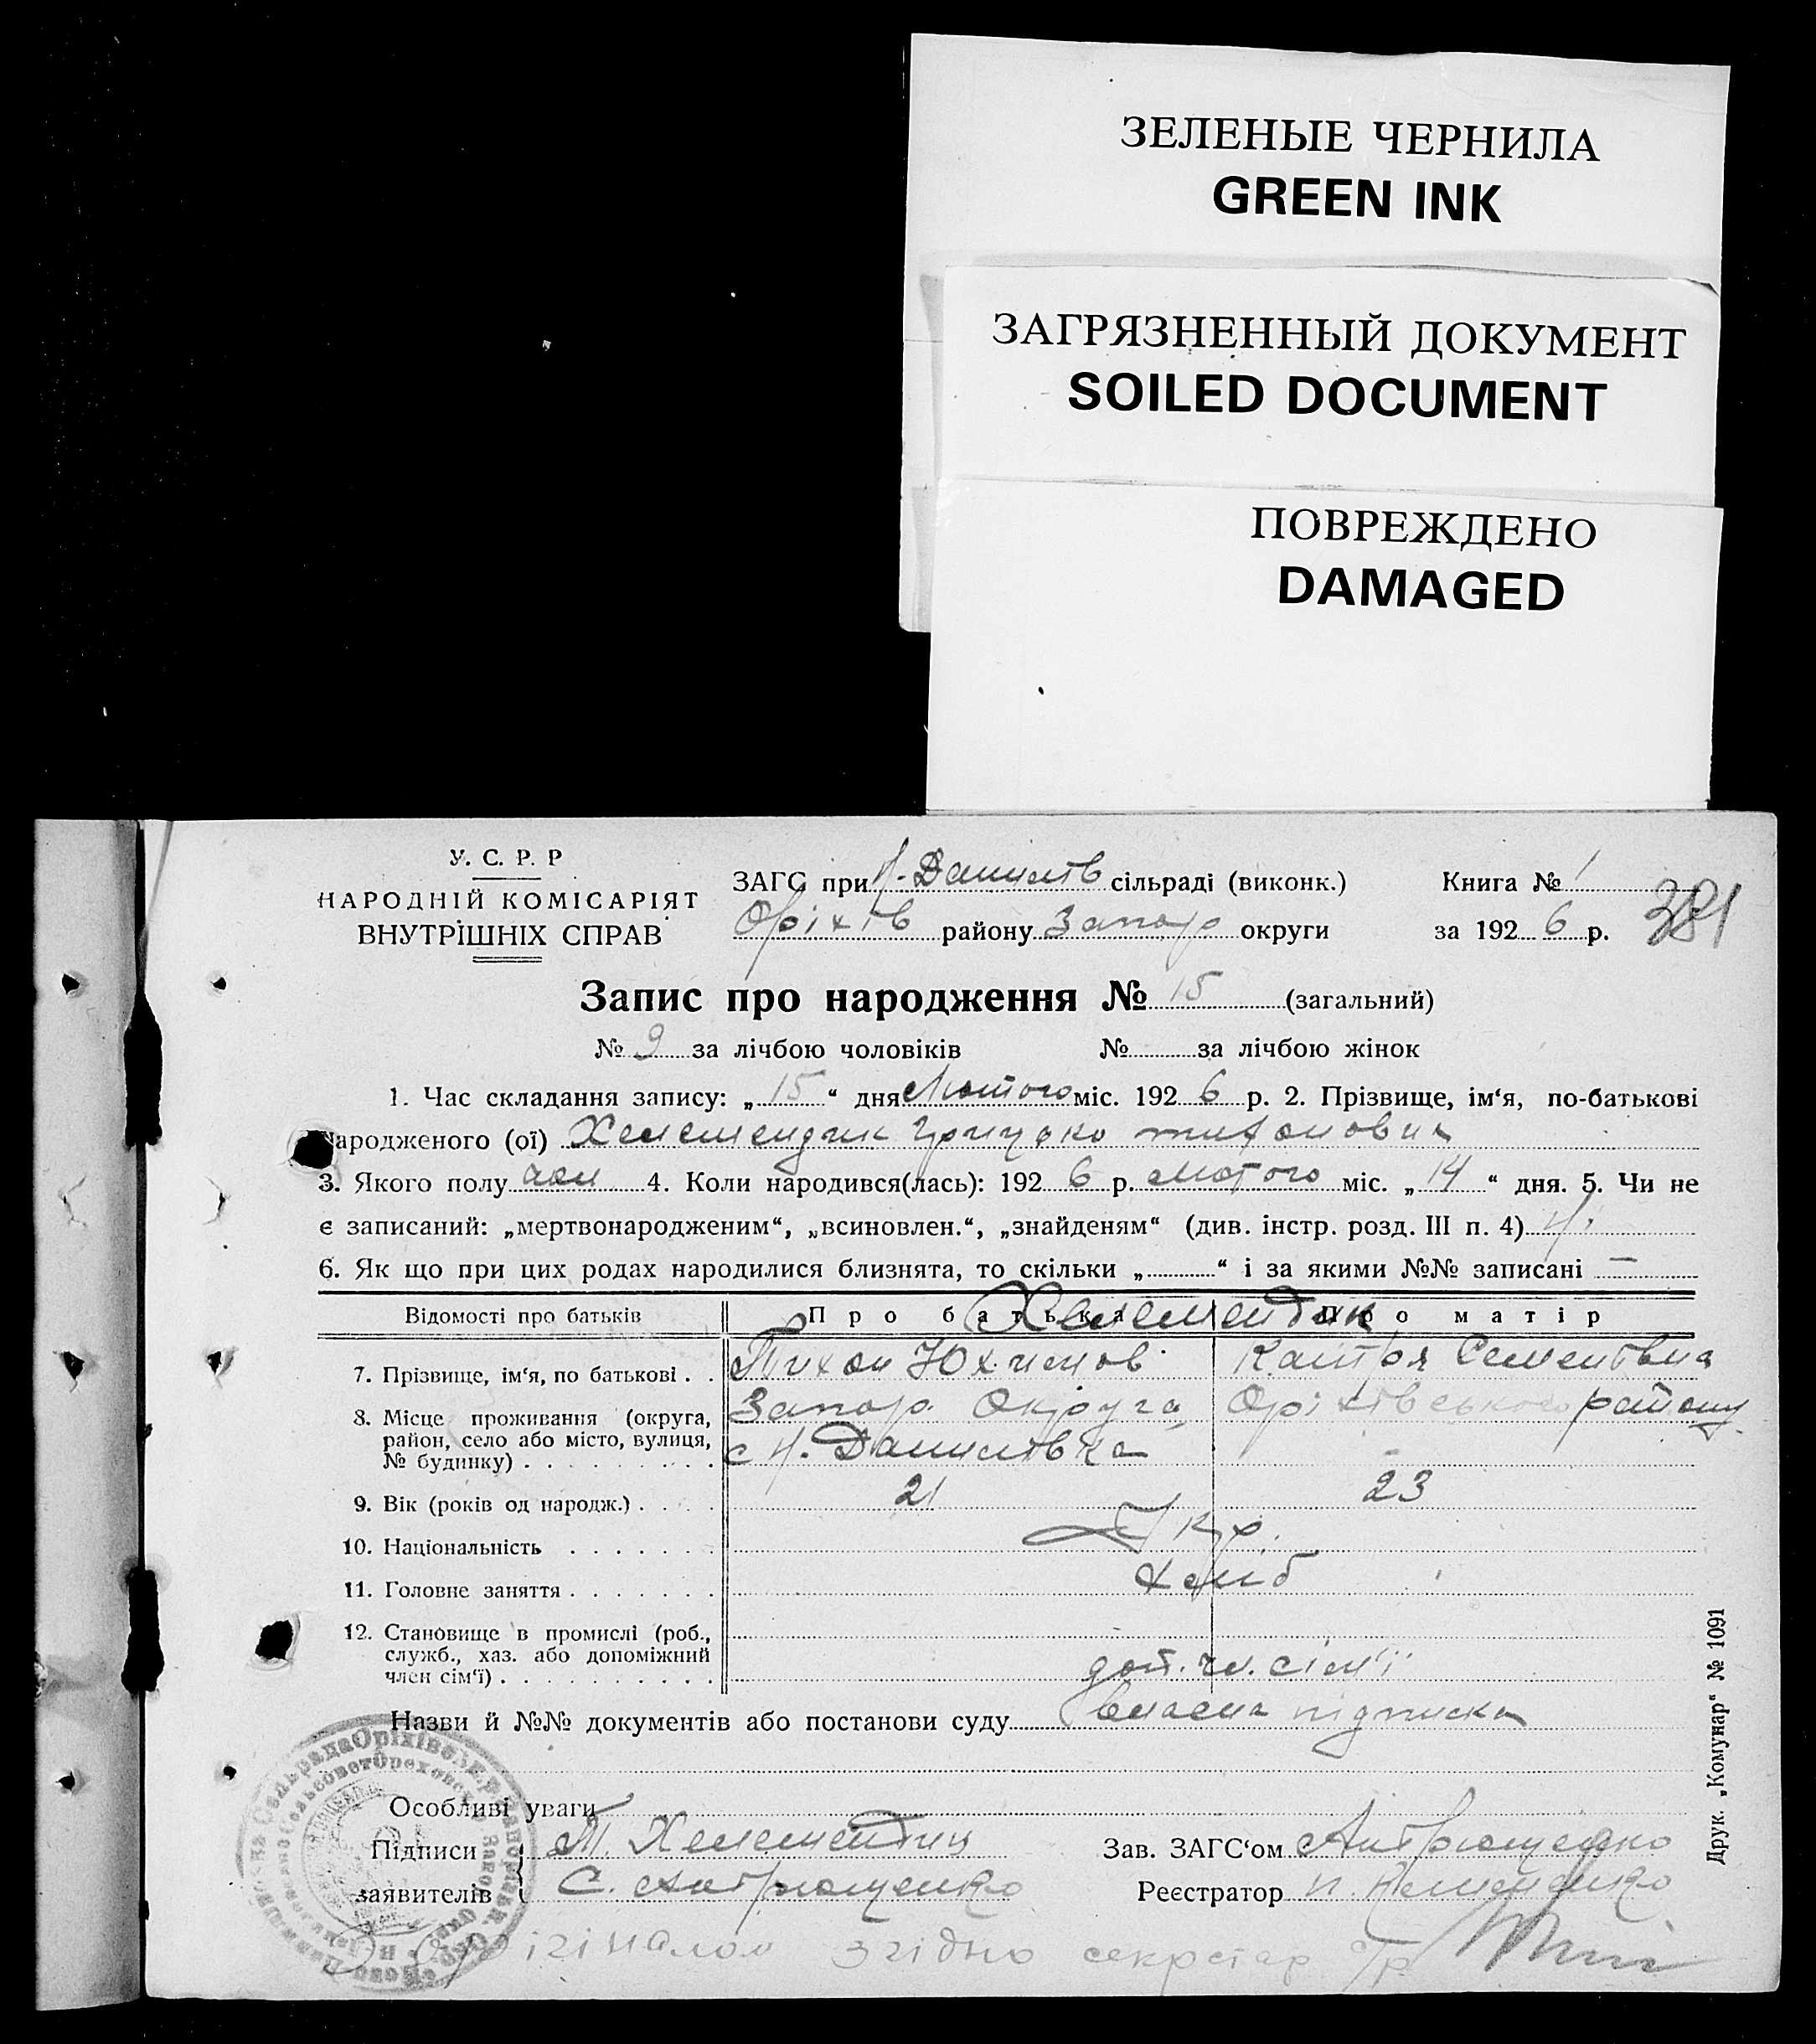 ЗЕЛЕНЫЕ ЧЕРНИЛА
GREEN INK
ЗАГРЯЗНЕННЫЙ ДОКУМЕНТ
SOILED DOCUMENT
ПОВРЕЖДЕНО
DAMAGED
У. С. Р. Р
НАРОДНІЙ КОМІСАРІЯТ
ВНУТРІШНІХ СПРАВ
ЗАГС при Н. Данилів сільраді (виконк.)
Оріхів району Запор округи
Книга № 1
за 1926 р.
381
Запис про народження № 15 (загальний)
№ 9 за лічбою чоловіків № за лічбою жінок
1. Час складання запису: „15“ дня Лютого міс. 1926 р. 2. Прізвище, ім‘я, по-батькові
народженого (ої) Хелемендик Грицько тихонович
3. Якого полу чол 4. Коли народився(лась): 1926 р. Лютого міс. „14“ дня. 5. Чи не
є записаний: „мертвонародженим“, „всиновлен.“, „знайденям“ (див. інстр. розд. III п. 4) Н.
6. Як що при цих родах народилися близнята, то скільки „ “ і за якими №№ записані —
Відомості про батьків Про батька Про матір
Хелемендик
7. Прізвище, ім‘я, по батькові . . Тихон Юхимов Катря Семенівна
8. Місце проживання (округа, Запор. Округа, Оріхівського району
район, село або місто, вулиця, с Н. Данилівка
№ будинку)
9. Вік (років од народж.) 21 23
10. Національність Укр.
11. Головне заняття хліб
12. Становище в промислі (роб.,
служб., хаз. або допоміжний
член сім‘ї) доп. чл. сім'ї
Назви й №№ документів або постанови суду власна підписка
Особливі уваги
Підписи Т. Хелемендик
заявителів С. Антрющенко
Зав. ЗАГС‘ом Антрющенко
Реєстратор
Друк. „Комунар“ № 1091
З оріґіналом згідно секретар с/р